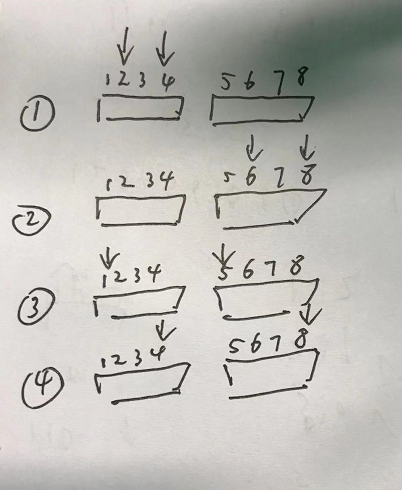 1234 5678
①
1234 5678
②
1234 5678
③
1234 5678
④